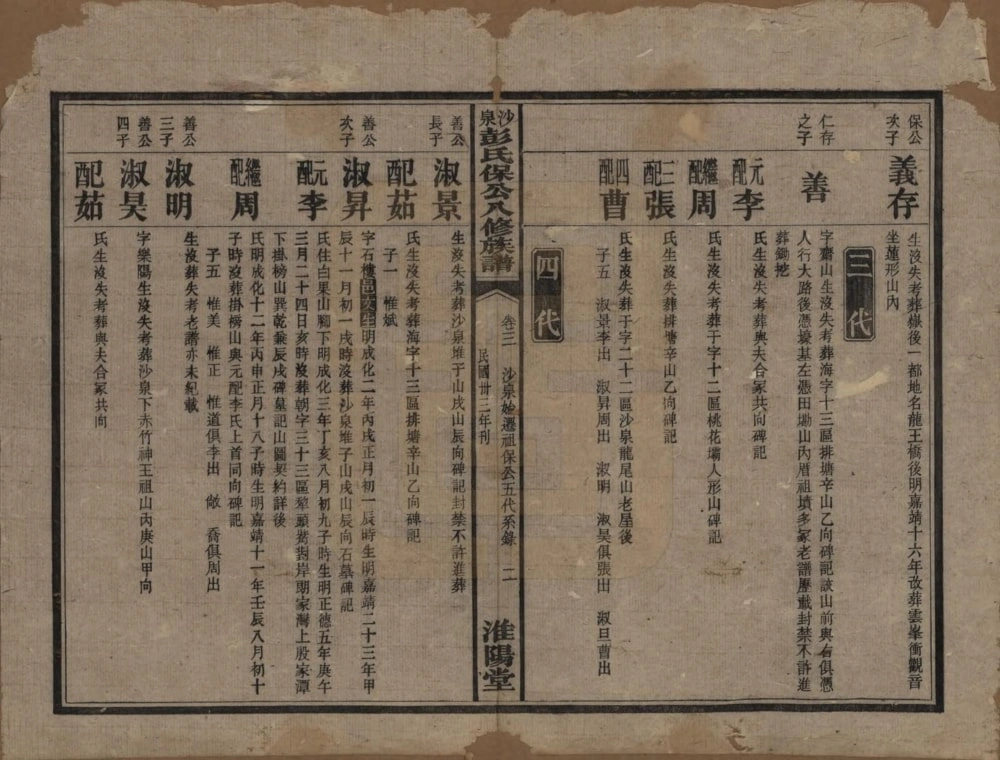 保公次子
義存
生沒失考葬嶽後一都地名龍王橋後明嘉靖十六年改葬雲峯衝觀音
坐蓮形山內
三代
仁存之子
善
字齋山生沒失考葬海字十三區排塘辛山乙向碑記該山前與右俱憑
人行大路後憑壕基左憑田塝山內厝祖墳多冢老譜歷載封禁不許進
葬鋤挖
元配李
氏生沒失考葬與夫合冢共向碑記
繼配周
氏生沒失考葬于字十二區桃花壩人形山碑記
三配張
氏生沒失葬排塘辛山乙向碑記
四配曹
氏生沒失葬于字二十二區沙泉龍尾山老屋後
子五 淑景李出 淑昇周出 淑明 淑昊俱張出 淑旦曹出
四代
沙泉彭氏保公八修族譜
卷三 沙泉始遷祖保公五代系錄 二
民國卅三年刊
淮陽堂
善公長子
淑景
生沒失考葬沙泉堆于山戌山辰向碑記封禁不許進葬
配茹
氏生沒失考葬海字十三區排塘辛山乙向碑記
子一 惟斌
善公次子
淑昇
字石樓邑庠生明成化二年丙戌正月初一辰時生明嘉靖二十三年甲
辰十一月初一戌時沒葬沙泉堆子山戌山辰向石墓碑記
元配李
氏住白果山腳下明成化三年丁亥八月初九子時生明正德五年庚午
三月二十四日亥時沒葬朝字三十三區犂頭嘴對岸胡家灣上殷家潭
下掛榜山巽乾兼辰戌碑墓記山圖契約詳後
繼配周
氏明成化十二年丙申正月十八子時生明嘉靖十一年壬辰八月初十
子時沒葬掛榜山與元配李氏上首同向碑記
子五 惟美 惟正 惟道俱李出 敞 喬俱周出
善公三子
淑明
生沒葬失考老譜亦未紀載
善公四子
淑昊
字樂陽生沒失考葬沙泉下赤竹神王祖山丙庚山甲向
配茹
氏生沒失考葬與夫合冢共向